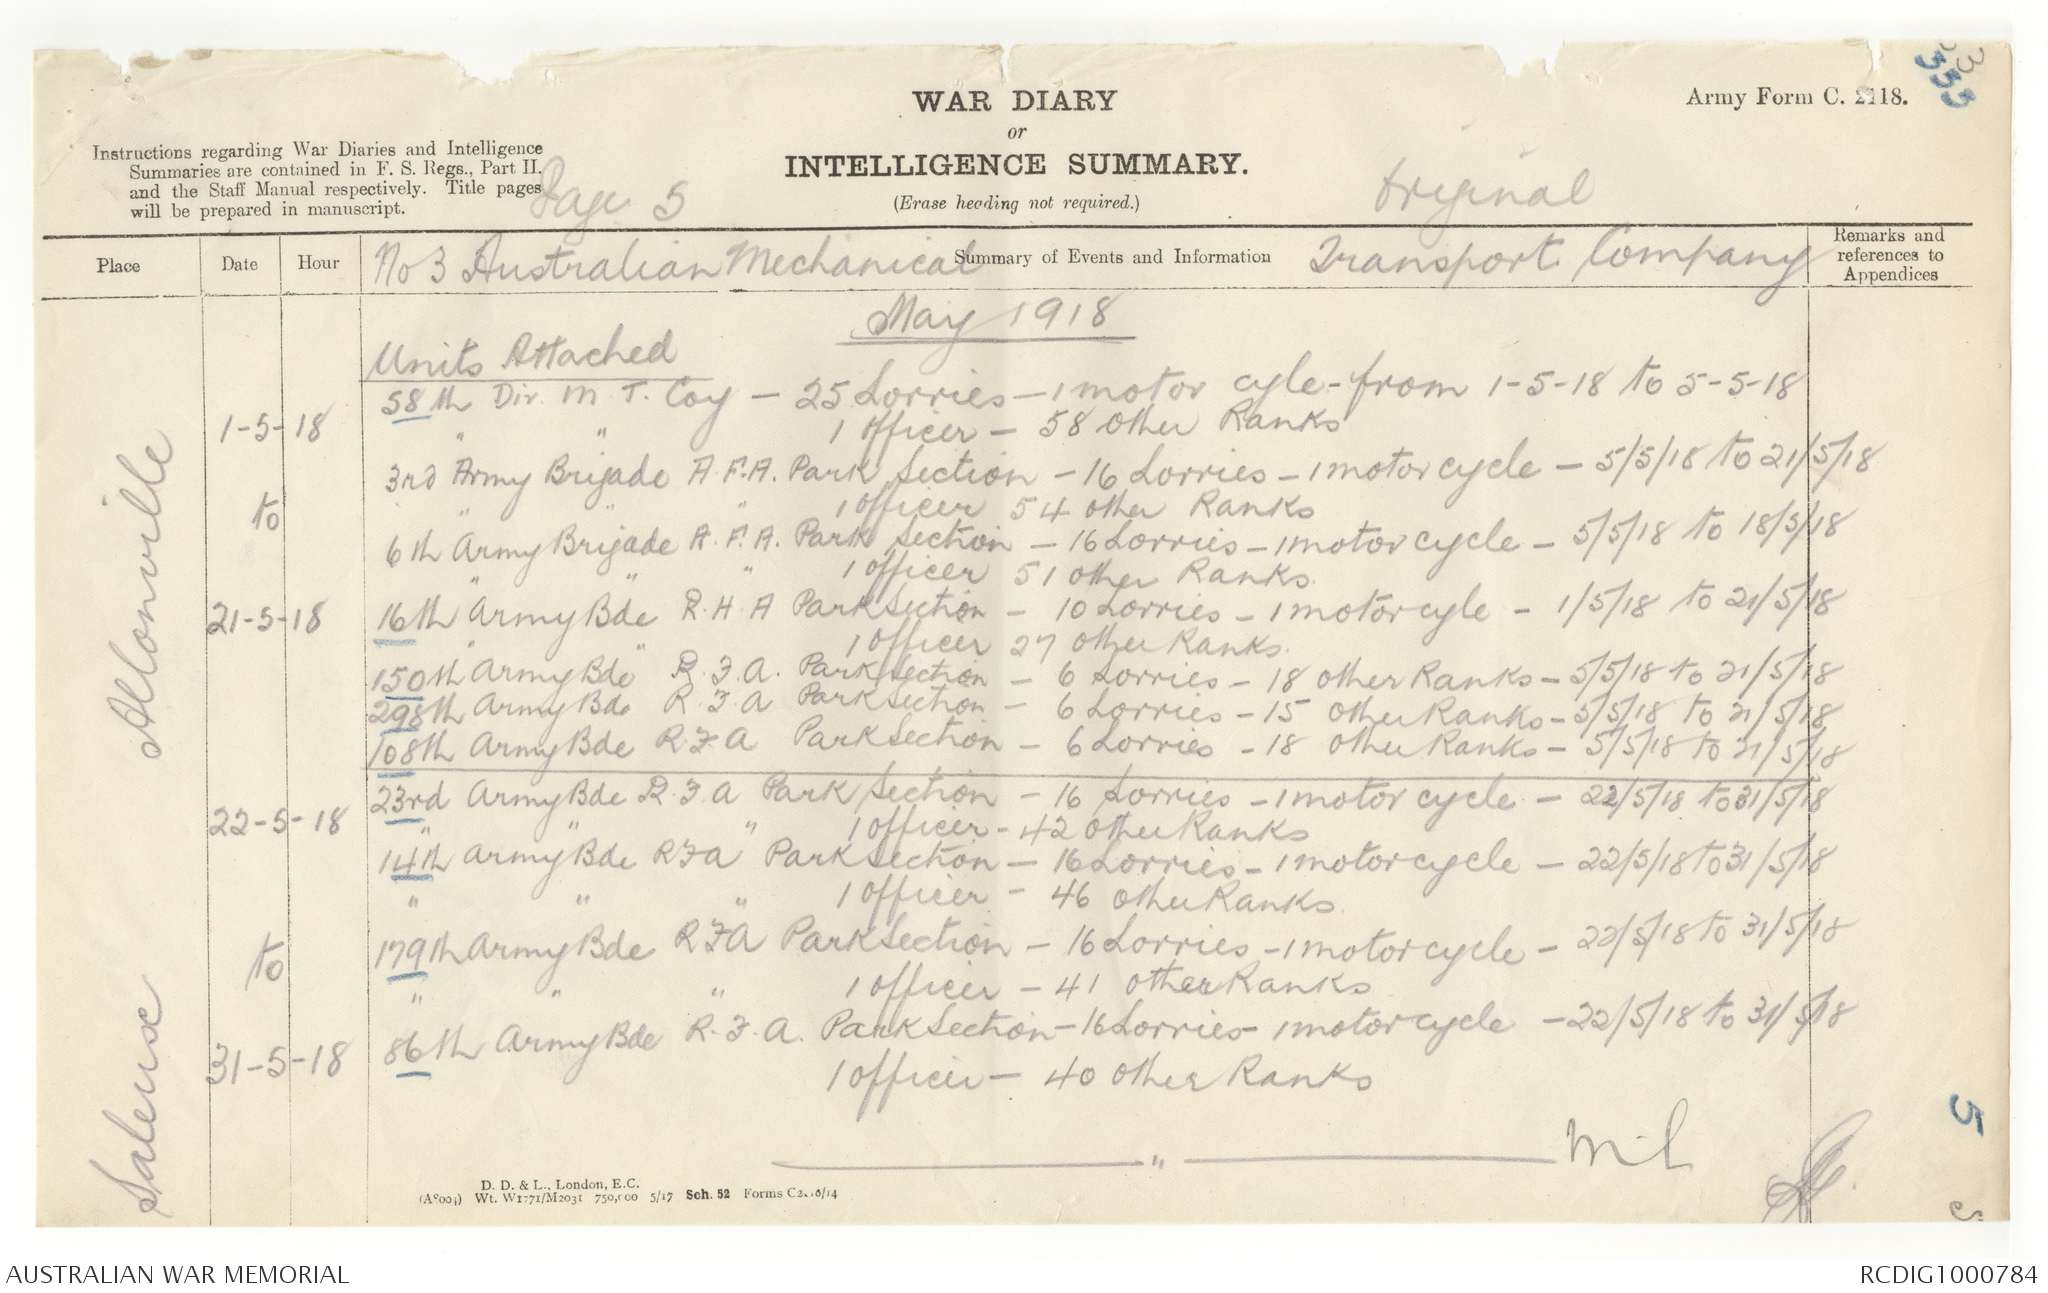 WAR DIARY
or
INTELLIGENCE SUMMARY.
(Erase heading not required.)
Army Form C. 2118.
Instructions regarding War Diaries and Intelligence
Summaries are contained in F. S. Regs., Part II.
and the Staff Manual respectively. Title pages
will be prepared in manuscript.
Page 5
Original
Place
Date
Hour
Summary of Events and Information
Remarks and
references to
Appendices
No 3 Australian Mechanical Transport Company
May 1918
Units Attached
Allonville
1-5-18
to
21-5-18
58th Div. M. T. Coy - 25 Lorries - 1 motor cyle - from 1-5-18 to 5-5-18
" " 1 Officer - 58 Other Ranks
3rd Army Brigade A.F.A. Park Section - 16 Lorries - 1 motor cycle - 5/5/18 to 21/5/18
" " " 1 Officer 54 other Ranks
6th Army Brigade A.F.A. Park Section - 16 Lorries - 1 motor cycle - 5/5/18 to 18/5/18
" " " 1 Officer 51 other Ranks
16th Army Bde R.H.A Park Section - 10 Lorries - 1 motor cycle - 1/5/18 to 21/5/18
" " 1 Officer 27 other Ranks.
150th Army Bde R.F.A. Park Section - 6 Lorries - 18 other Ranks - 5/5/18 to 21/5/18
298th Army Bde R.F.A Park Section - 6 Lorries - 15 other Ranks - 5/5/18 to 21/5/18
108th Army Bde R.F.A Park Section - 6 Lorries - 18 other Ranks - 5/5/18 to 21/5/18
Saleux
22-5-18
to
31-5-18
23rd Army Bde R.F.A Park Section - 16 Lorries - 1 motor cycle - 22/5/18 to 31/5/18
" " " 1 Officer - 42 other Ranks
14th Army Bde RFA Park Section - 16 Lorries - 1 motor cycle - 22/5/18 to 31/5/18
" " " 1 Officer - 46 other Ranks
179th Army Bde RFA Park Section - 16 Lorries - 1 motor cycle - 22/5/18 to 31/5/18
" " " 1 Officer - 41 other Ranks
86th Army Bde R.F.A. Park Section - 16 Lorries - 1 motor cycle - 22/5/18 to 31/5/18
1 Officer - 40 other Ranks
"
5
D. D. & L., London, E.C.
Wt. W1771/M2031 750,000 5/17 Sch. 52 Forms
AUSTRALIAN WAR MEMORIAL
RCDIG1000784